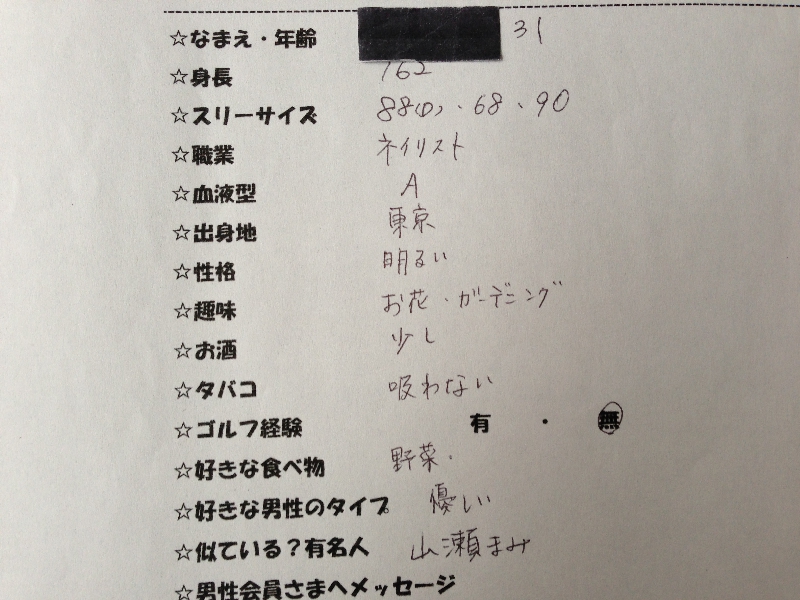 ☆なまえ・年齢 31
☆身長 162
☆スリーサイズ 88(D)、68、90
☆職業 ネイリスト
☆血液型 A
☆出身地 東京
☆性格 明るい
☆趣味 お花・ガーデニング
☆お酒 少し
☆タバコ 吸わない
☆ゴルフ経験 有 ・ 無
☆好きな食べ物 野菜.
☆好きな男性のタイプ 優しい
☆似ている?有名人 山瀬まみ
☆男性会員さまへメッセージ